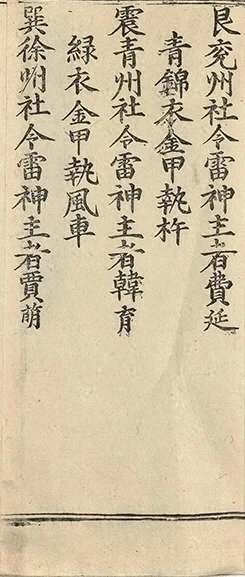 艮兖州社令雷神主者費延
青錦衣金甲執杵
震青州社令雷神主者韓育
緑衣金甲執風車
巽徐州社令雷神主者賈萌